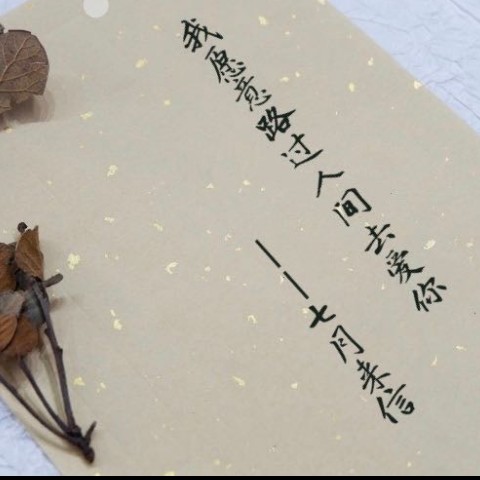 我愿意路过人间去爱你
——七月来信